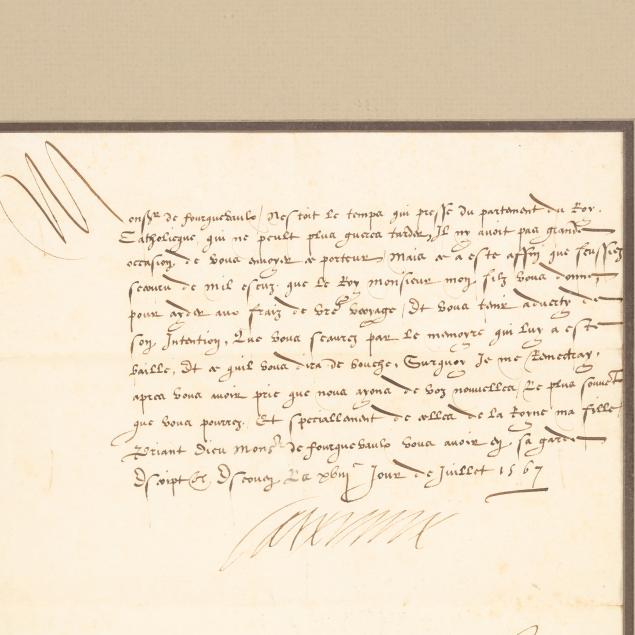 Monsr de fourquevaulx / Nestoit le temps qui presse du partement du Roy
Catholicque, qui ne peult plus gueres tarder, Il ny avoit pas grande
occasion de vous envoyer ce porteur / Mais ce a este affin que feussiez
secouru de mil escuz que le Roy monsieur mon filz vous donne
pour ayder aux fraiz de vre voyage / Et vous tenir adverty de
son Intention, Que vous scaurez par le memoyre qui luy a este
baille, Et ce quil vous dira de bouche, Surquoy Je me Remectray,
apres vous avoir prie que nous ayons de voz nouvelles, Le plus souvet
que vous pourrez. Et speciallement de celles de la Royne ma fille
Priant Dieu Monsr de fourquevaulx vous avoir en sa garde
Escript a Escouen Le xviije Jour de Juillet 1567
Caterine